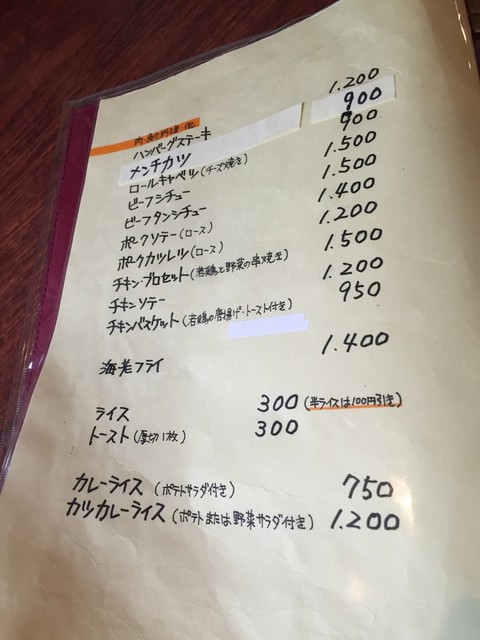 肉・魚料理 他
ハンバーグステーキ 1.200
メンチカツ 900
ロールキャベツ(チーズ焼き) 900
ビーフシチュー 1.500
ビーフタンシチュー 1.500
ポークソテー(ロース) 1.400
ポークカツレツ(ロース) 1.200
チキン・ブロセット(若鶏と野菜の串焼き) 1.500
チキンソテー 1.200
チキンバスケット(若鶏の唐揚げ・トースト付き) 950
海老フライ 1.400
ライス 300(半ライスは100円引き)
トースト(厚切1枚) 300
カレーライス(ポテトサラダ付き) 750
カツカレーライス(ポテトまたは野菜サラダ付き) 1.200